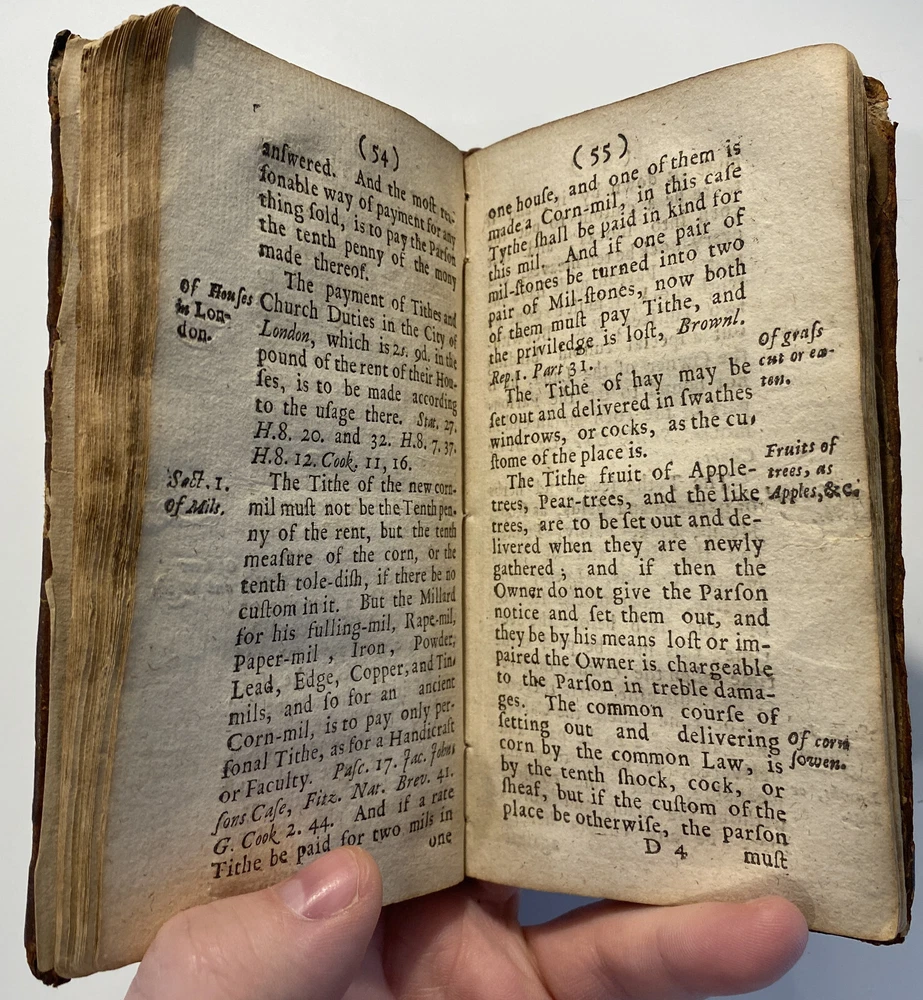 (54)
anſwered. And the moſt rea-
ſonable way of payment for any
thing ſold, is to pay the Parſon
the tenth penny of the mony
made thereof.
Of Houſes
in Lon-
don.
The payment of Tithes and
Church Duties in the City of
London, which is 2s. 9d. in the
pound of the rent of their Hou-
ſes, is to be made according
to the uſage there. Stat. 27.
H.8. 20. and 32. H.8. 7. 37.
H.8. 12. Cook. 11, 16.
Sect. 1.
Of Mils.
The Tithe of the new corn-
mil muſt not be the Tenth pen-
ny of the rent, but the tenth
meaſure of the corn, or the
tenth tole-diſh, if there be no
cuſtom in it. But the Millard
for his fulling-mil, Rape-mil,
Paper-mil, Iron, Powder,
Lead, Edge, Copper, and Tin-
mils, and ſo for an ancient
Corn-mil, is to pay only per-
ſonal Tithe, as for a Handicraft
or Faculty. Paſc. 17. Jac. John-
ſons Caſe, Fitz. Nat. Brev. 41.
G. Cook 2. 44. And if a rate
Tithe be paid for two mils in
one
(55)
one houſe, and one of them is
made a Corn-mil, in this caſe
Tythe ſhall be paid in kind for
this mil. And if one pair of
mil-ſtones be turned into two
pair of Mil-ſtones, now both
of them muſt pay Tithe, and
the priviledge is loſt, Brownl.
Rep. 1. Part 31.
Of graſs
cut or ea-
ten.
The Tithe of hay may be
ſet out and delivered in ſwathes
windrows, or cocks, as the cu-
ſtome of the place is.
Fruits of
trees, as
Apples, &c.
The Tithe fruit of Apple-
trees, Pear-trees, and the like
trees, are to be ſet out and de-
livered when they are newly
gathered; and if then the
Owner do not give the Parſon
notice and ſet them out, and
they be by his means loſt or im-
paired the Owner is chargeable
to the Parſon in treble dama-
ges. The common courſe of
ſetting out and delivering
Of corn
ſowen.
corn by the common Law, is
by the tenth ſhock, cock, or
ſheaf, but if the cuſtom of the
place be otherwiſe, the parſon
D 4 muſt